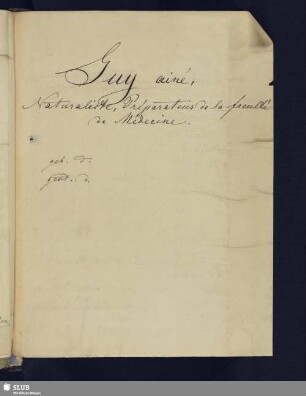 Guy ainé,
Naturaliste, Préparateur de la faculté
de Médecine.
geb. d.
gest. d.
SLUB